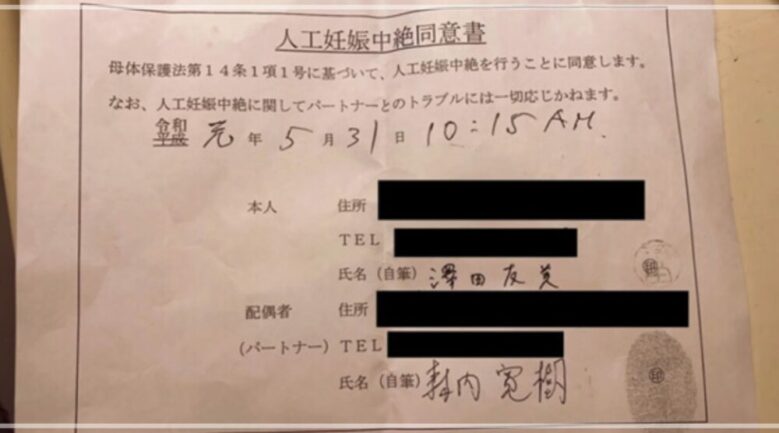 人工妊娠中絶同意書
母体保護法第14条1項1号に基づいて、人工妊娠中絶を行うことに同意します。
なお、人工妊娠中絶に関してパートナーとのトラブルには一切応じかねます。
令和
平成 元 年 5 月 31 日 10:15 AM.
本人 住所
TEL
氏名（自筆） 澤田友英 印
配偶者 住所
(パートナー) TEL
氏名（自筆） 内寛樹 印